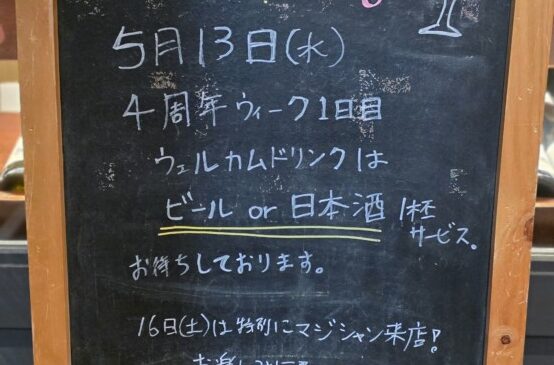 5月13日(水)
4周年ウィーク1日目
ウェルカムドリンクは
ビール or 日本酒 1杯
サービス。
お待ちしております。
16日(土)は特別にマジシャン来店!